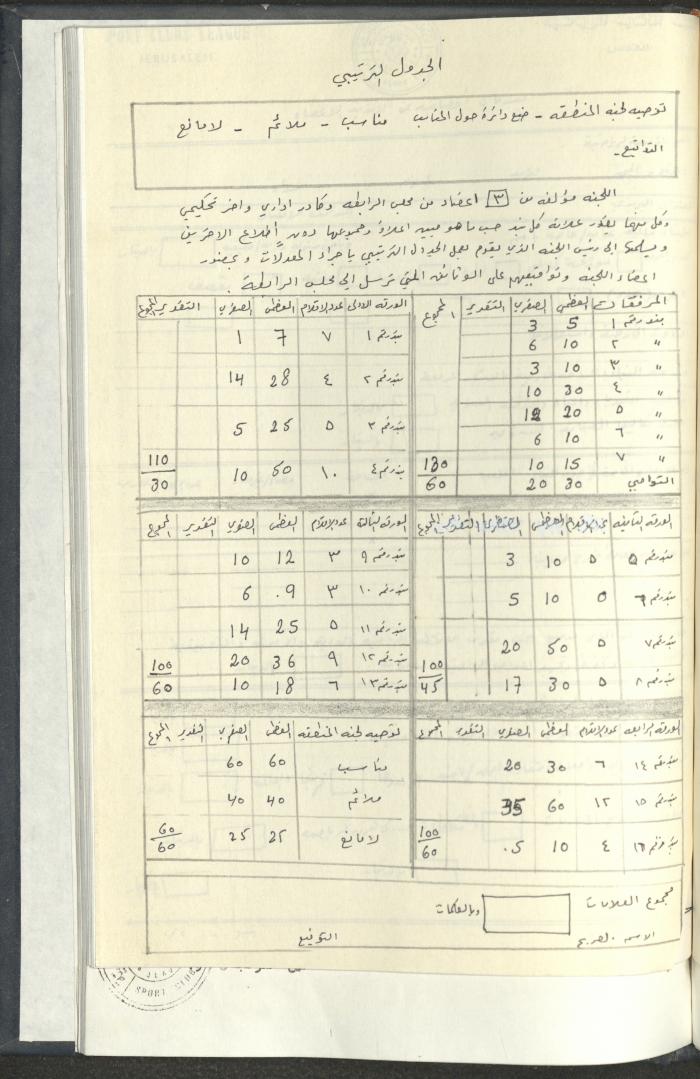 الجدول الترتيبي
توصيه لجنه المنطقه - ضع دائرة حول المناسب مناسب - ملائم - لا مانع
التواقيع -
اللجنه مؤلفه من ٣ اعضاء من مجلس الرابطه وكادر اداري واخر تحكيمي
وكل منهما يقرر علامة كل بند حسب ما هو مبين اعلاه ومجموعها دون أطلاع الاخرين
ويسلمها الى رئيس اللجنه الذي يقوم بعمل الجدول الترتيبي باجراء المعدلات وبحضور
اعضاء اللجنه وتواقيعهم على الوثائق التي ترسل الى مجلس الرابطة .
المرفقات العظمى الصغرى التقدير المجموع
بند رقم ١ 5 3
" ٢ 10 6
" ٣ 10 3
" ٤ 30 10
" ٥ 20 12
" ٦ 10 6
" ٧ 15 10 130
النواحي 30 20 60
الورقه الاولى عدد الاقلام العظمى الصغرى التقدير المجموع
بند رقم ١ ٧ 7 1
بند رقم ٢ ٤ 28 14
بند رقم ٣ ٥ 25 5
بند رقم ٤ ١٠ 50 10 110
30
الورقه الثانيه عدد الاقلام العظمى الصغرى التقدير المجموع
بند رقم ٥ ٥ 10 3
بند رقم ٦ ٥ 10 5
بند رقم ٧ ٥ 50 20
بند رقم ٨ ٥ 30 17 100
45
الورقه الثالثة عدد الاقلام العظمى الصغرى التقدير المجموع
بند رقم ٩ ٣ 12 10
بند رقم ١٠ ٣ 09 6
بند رقم ١١ ٥ 25 14
بند رقم ١٢ ٩ 36 20 100
بند رقم ١٣ ٦ 18 10 60
الورقه الرابعه عدد الاقلام العظمى الصغرى التقدير المجموع
بند رقم ١٤ ٦ 30 20
بند رقم ١٥ ١٢ 60 35
بند رقم ١٦ ٤ 10 05 100
60
توصيه لجنة المنطقه العظمى الصغرى التقدير المجموع
مناسب 60 60
ملائم 40 40
لا مانع 25 25 60
60
مجموع العلامات وبالكلمات
الاسم الصريح التوقيع